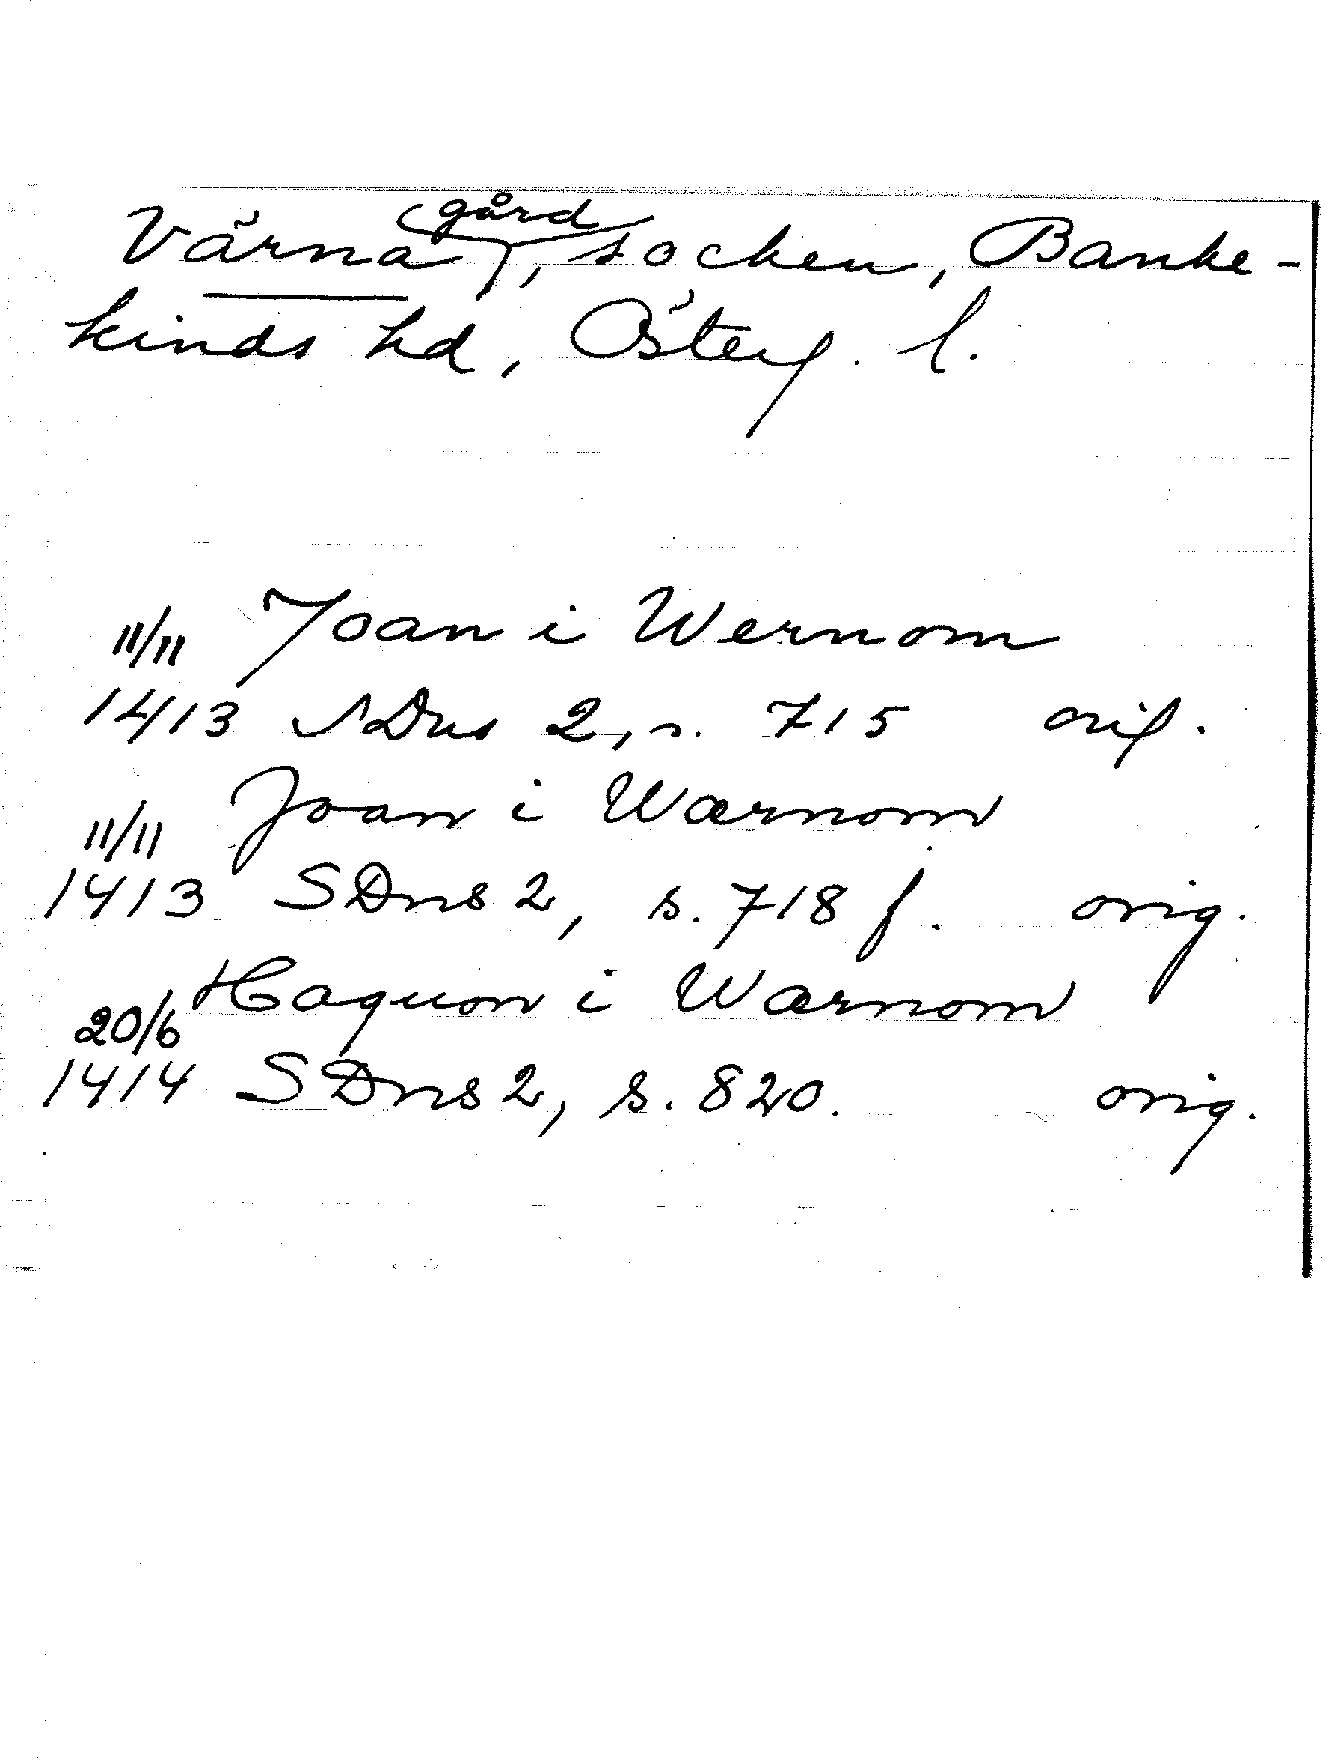 Värna gård, socken, Banke-
kinds hd, Österg. l.
11/11 Joan i Wernom
1413 SDns 2, s. 715 orig.
11/11 Joan i Wærnom
1413 SDns 2, s. 718 f. orig.
20/6 Haquon i Wærnom
1414 SDns 2, s. 820. orig.